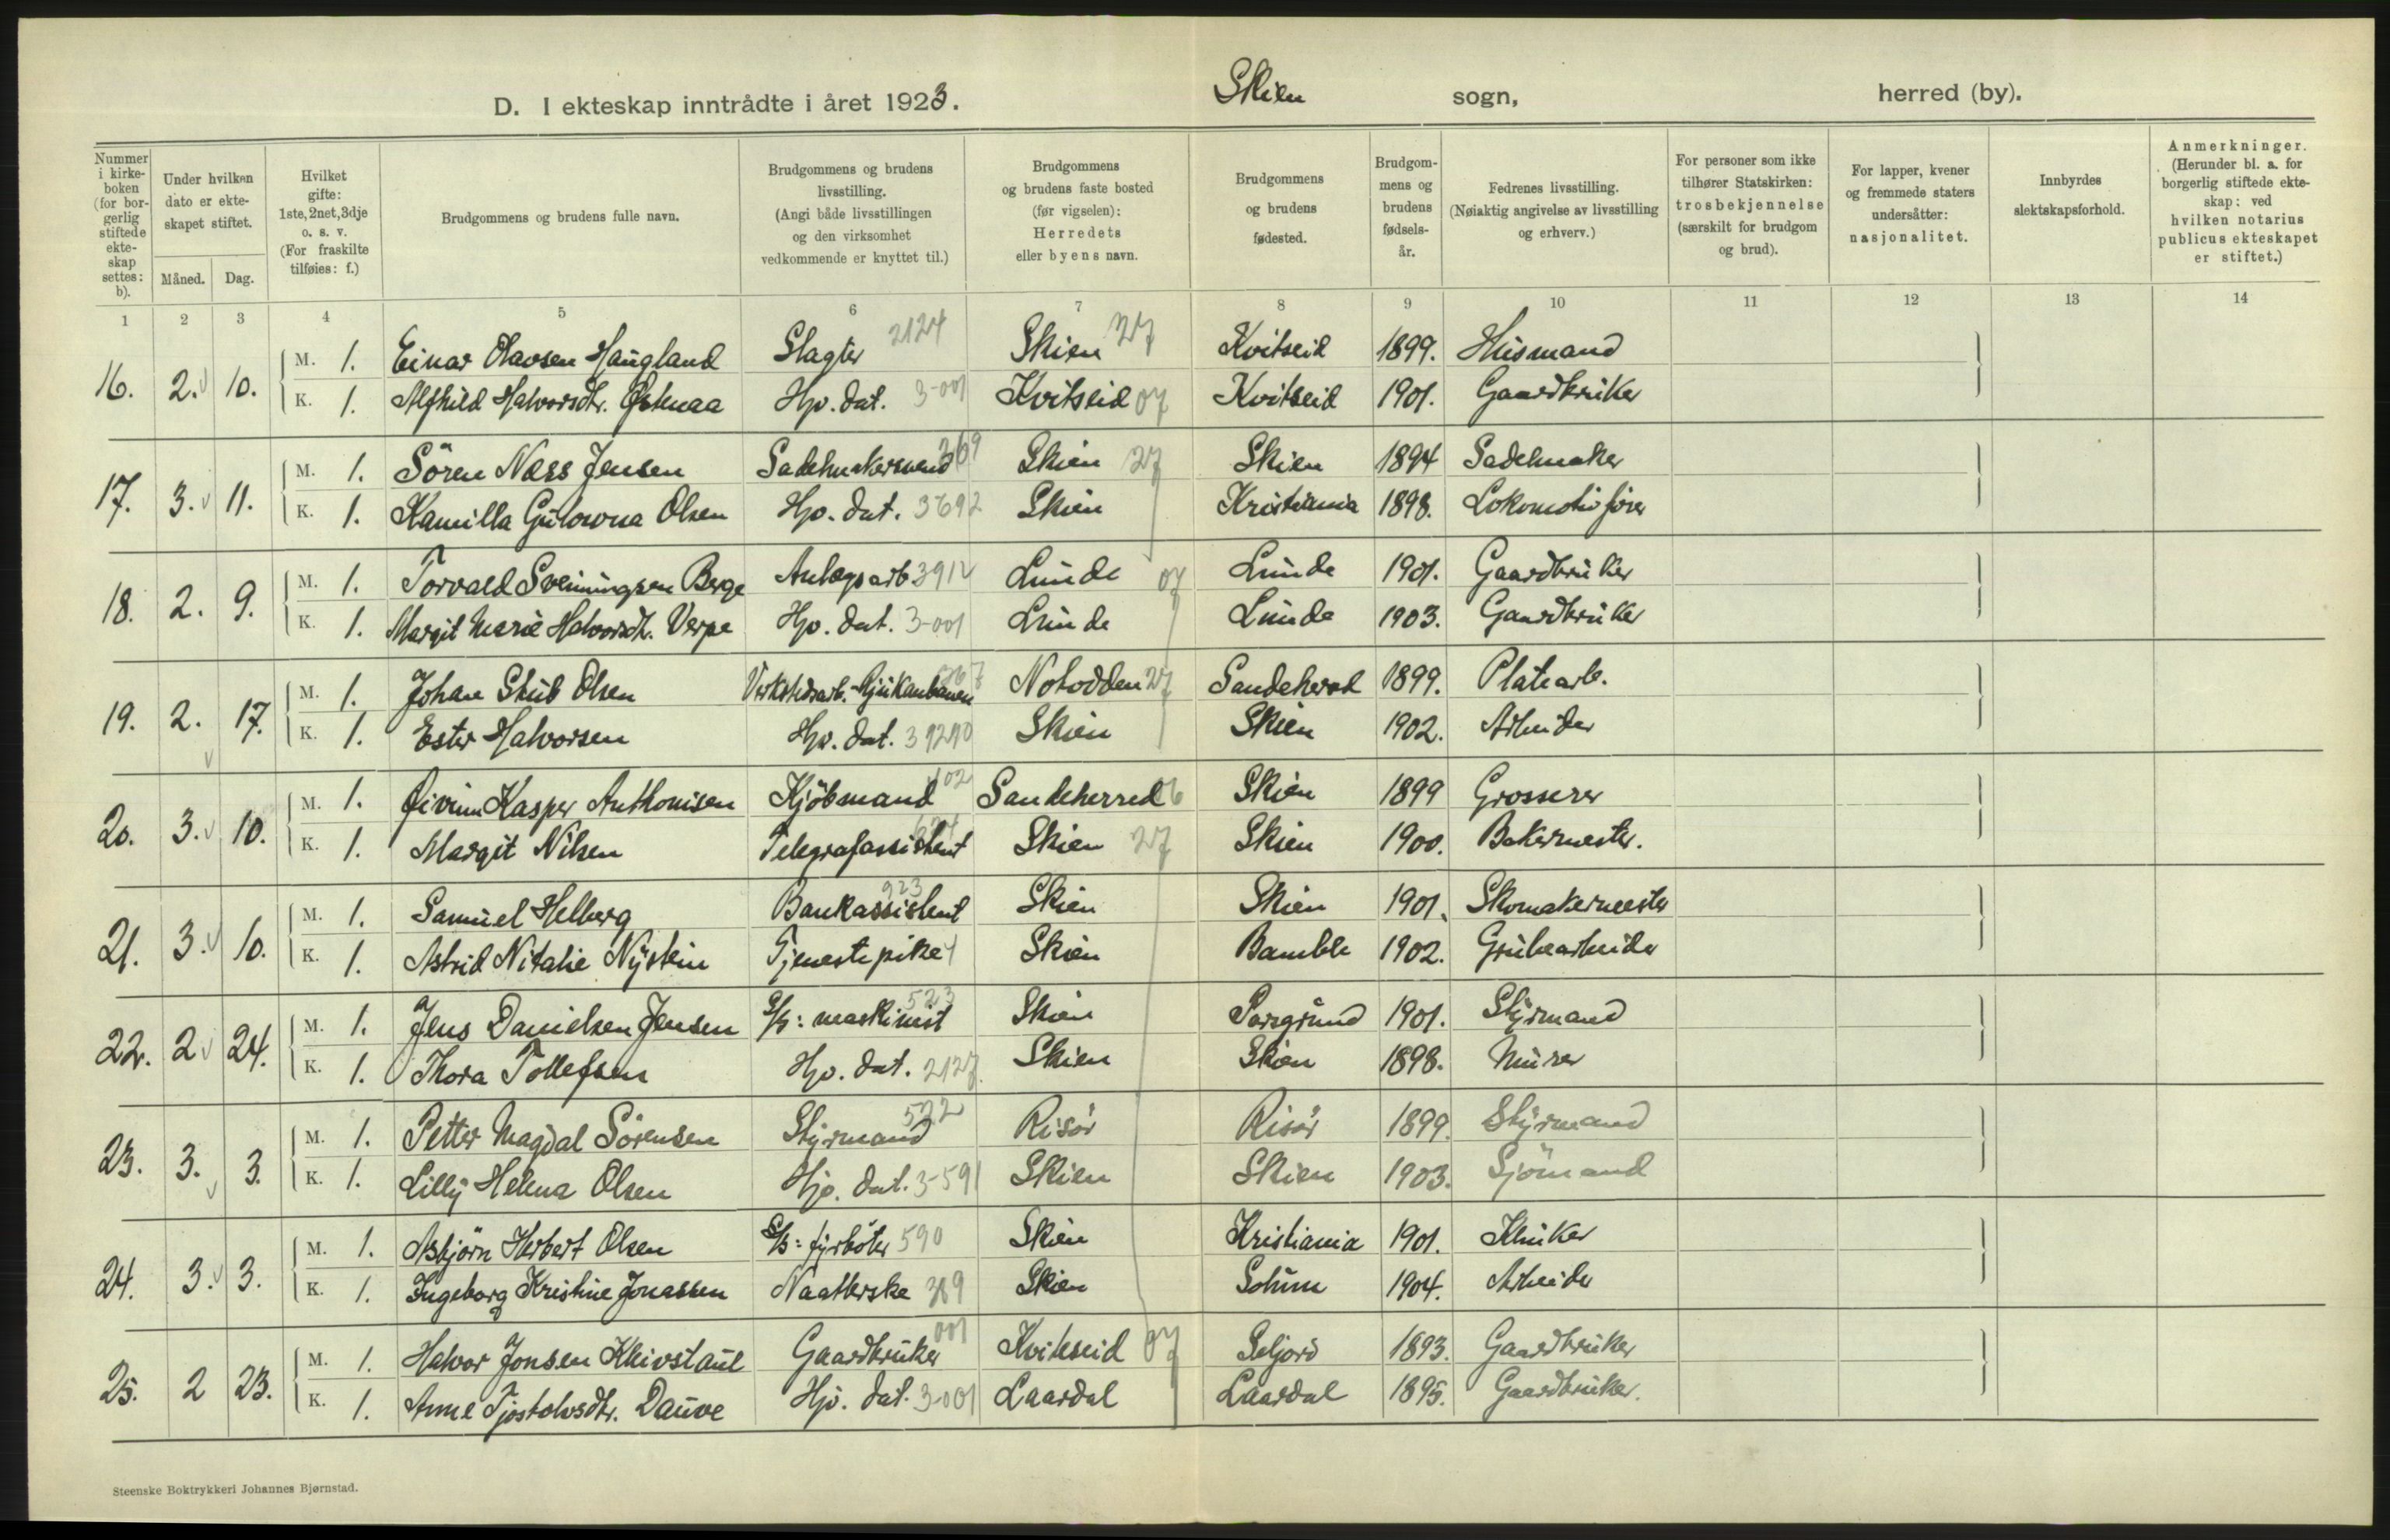 D. I ekteskap inntrådte i året 1923. Skien sogn, herred (by).
Nummer i kirkeboken (for borgerlig stiftede ekteskap settes: b).
Under hvilken dato er ekteskapet stiftet.
Måned. Dag.
Hvilket gifte: 1ste, 2net, 3dje o. s. v. (For fraskilte tilføies: f.)
Brudgommens og brudens fulle navn.
Brudgommens og brudens livsstilling. (Angi både livsstillingen og den virksomhet vedkommende er knyttet til.)
Brudgommens og brudens faste bosted (før vigselen): Herredets eller byens navn.
Brudgommens og brudens fødested.
Brudgommens og brudens fødselsår.
Fedrenes livsstilling. (Nøiaktig angivelse av livsstilling og erhverv.)
For personer som ikke tilhører Statskirken: trosbekjennelse (særskilt for brudgom og brud).
For lapper, kvener og fremmede staters undersåtter: nasjonalitet.
Innbyrdes slektskapsforhold.
Anmerkninger. (Herunder bl. a. for borgerlig stiftede ekteskap: ved hvilken notarius publicus ekteskapet er stiftet.)
1 2 3 4 5 6 7 8 9 10 11 12 13 14
16. 2. 10. M. 1. Einar Olavsen Haugland Slagter 2124 Skien 27 Kvitseid 1899. Husmand
K. 1. Alfhild Halvorsdtr. Hp. dat. 3-001 Kvitseid 07 Kvitseid 1901. Gaardbruker
17. 3. 11. M. 1. Sören Næss Jensen Sadelmakersvend 369 Skien 27 Skien 1894 Sadelmaker
K. 1. Kamilla Gulowna Olsen Hp. dat. 3692 Skien Kristiania 1898. Lokomotivförer
18. 2. 9. M. 1. Torvald Sveinungsen Berge Anlægsarb 3912 Lunde 07 Lunde 1901. Gaardbruker
K. 1. Margit Marie Halvorsdtr. Verpe Hp. dat. 3-001 Lunde Lunde 1903. Gaardbruker
19. 2. 17. M. 1. Johan Skub Olsen Verkstedsarb. Rjukanbanen Notodden 27 Sandeherad 1899. Platearb.
K. 1. Ester Halvorsen Hp. dat. 39290 Skien Skien 1902. Arbeider
20. 3. 10. M. 1. Øivinn Kasper Anthonisen Kjöbmand 402 Sandeherred 6 Skien 1899 Grosserer
K. 1. Margit Nilsen Telegrafassistent Skien 27 Skien 1900. Bakermester.
21. 3. 10. M. 1. Samuel Helberg Bankassistent 923 Skien Skien 1901. Skomakermester
K. 1. Astrid Nitalie Nystein Tjenestepike Skien Bamble 1902. Grubearbeider
22. 2 24. M. 1. Jens Danielsen Jensen S/s: maskinist 523 Skien Porsgrund 1901. Styrmand
K. 1. Thora Tollefsen Hp. dat. 2127. Skien Skien 1898. Murer
23. 3. 3. M. 1. Petter Magdal Sörensen Styrmand 522 Risör Risör 1899. Styrmand
K. 1. Lilly Helena Olsen Hp. dat. 3-591 Skien Skien 1903. Sjömand
24. 3. 3. M. 1. Asbjörn Herbert Olsen S/s: fyrböter 590 Skien Kristiania 1901. Klinker
K. 1. Ingeborg Kristine Jonassen Naatlerske 389 Skien Solum 1904. Arbeider
25. 2 23. M. 1. Halvor Jonsen Kleivstaul Gaardbruker 001 Kviteseid 07 Seljord 1893. Gaardbruker
K. 1. Anne Tjostolvsdtr. Dauve Hp. dat. 3-001 Laardal Laardal 1895. Gaardbruker.
Steenske Boktrykkeri Johannes Bjørnstad.